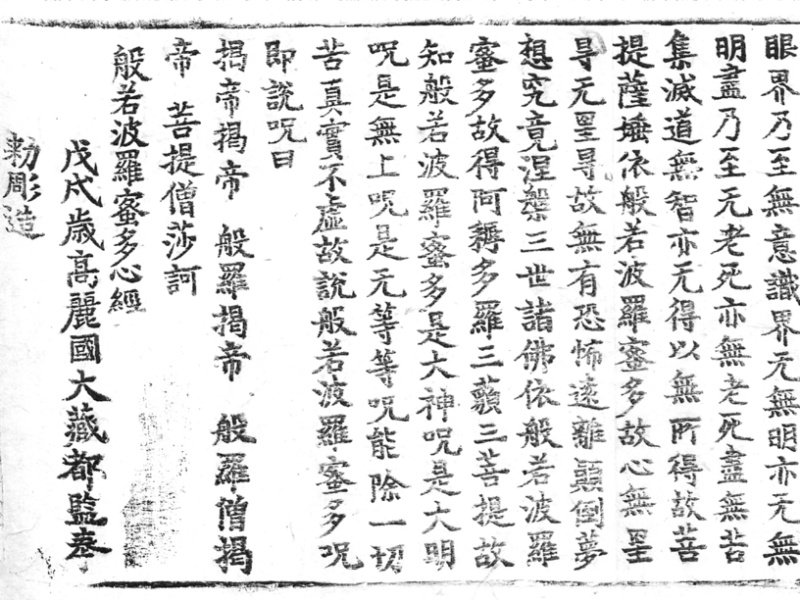 眼界乃至無意識界无無明亦无無
明盡乃至无老死亦無老死盡無苦
集滅道無智亦无得以無所得故菩
提薩埵依般若波羅蜜多故心無罣
㝵无罣㝵故無有恐怖遠離顚倒夢
想究竟涅槃三世諸佛依般若波羅
蜜多故得阿耨多羅三藐三菩提故
知般若波羅蜜多是大神呪是大明
呪是無上呪是无等等呪能除一切
苦真實不虛故說般若波羅蜜多呪
即說呪曰
揭帝揭帝 般羅揭帝 般羅僧揭
帝 菩提僧莎訶
般若波羅蜜多心經
戊戌歲高麗國大藏都監奉
勑彫造